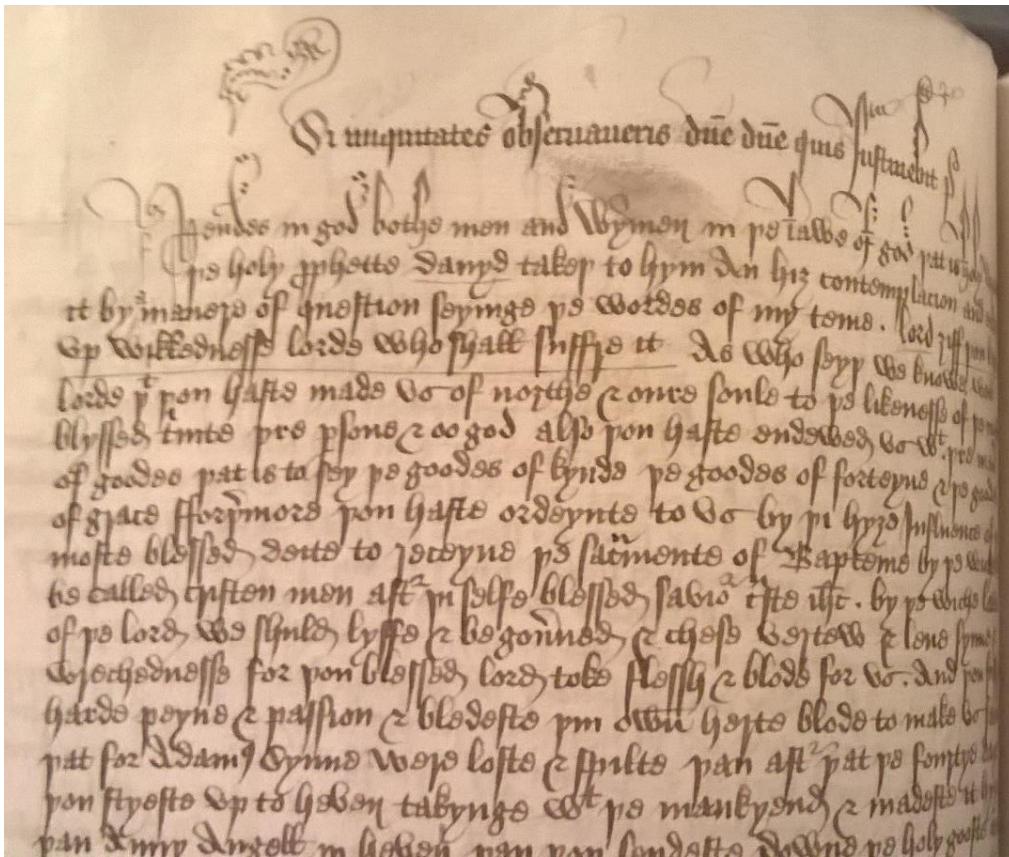 Si iniquitates obseruaueris dn̄e dn̄e quis sustinebit
Frendes in god bothe men and wymen in þe lawe of god þat is
þe holy p̄phette dauyd takeþ to hym An hiz contemplacion and
it by manere of question seyinge þe wordes of my teme . lord ziff þou
vp wikkednesse lorde who shall suffre it As who seyþ we knowe
lorde þt þou haste made vs of nozthe & oure soule to þe likenesse of þe
blyssed tⁱnite þre p̄sone & oo god also þou haste endewed vs wt þre
of goodes þat is to sey þe goodes of kynde þe goodes of forteyne & þe good
of grace fforþ̄more þou haste ordeynte to vs by þi hyze Influence of
moste blessed deite to receyue þe sacᵃmente of Bapteme by þe
be called cristen men aftr þi selfe blessed sauior c̄ste ih̄c . by þe wiche
of þe lord we shuld lyffe & be gou̅ned & chese vertew & leue synne
wrechednesse for þou blessed lord toke flessh & blode for vs . And þou
harde peyne & passion & bledeste þin own herte blode to make vs
þat for Adam synne were loste & spilte þan aftr þat þe fourtye
þou styeste vp to heven takynge wt þe mankyend & madeste it
þan Any Angell in heven þan þou sendeste downe þe holy gooste